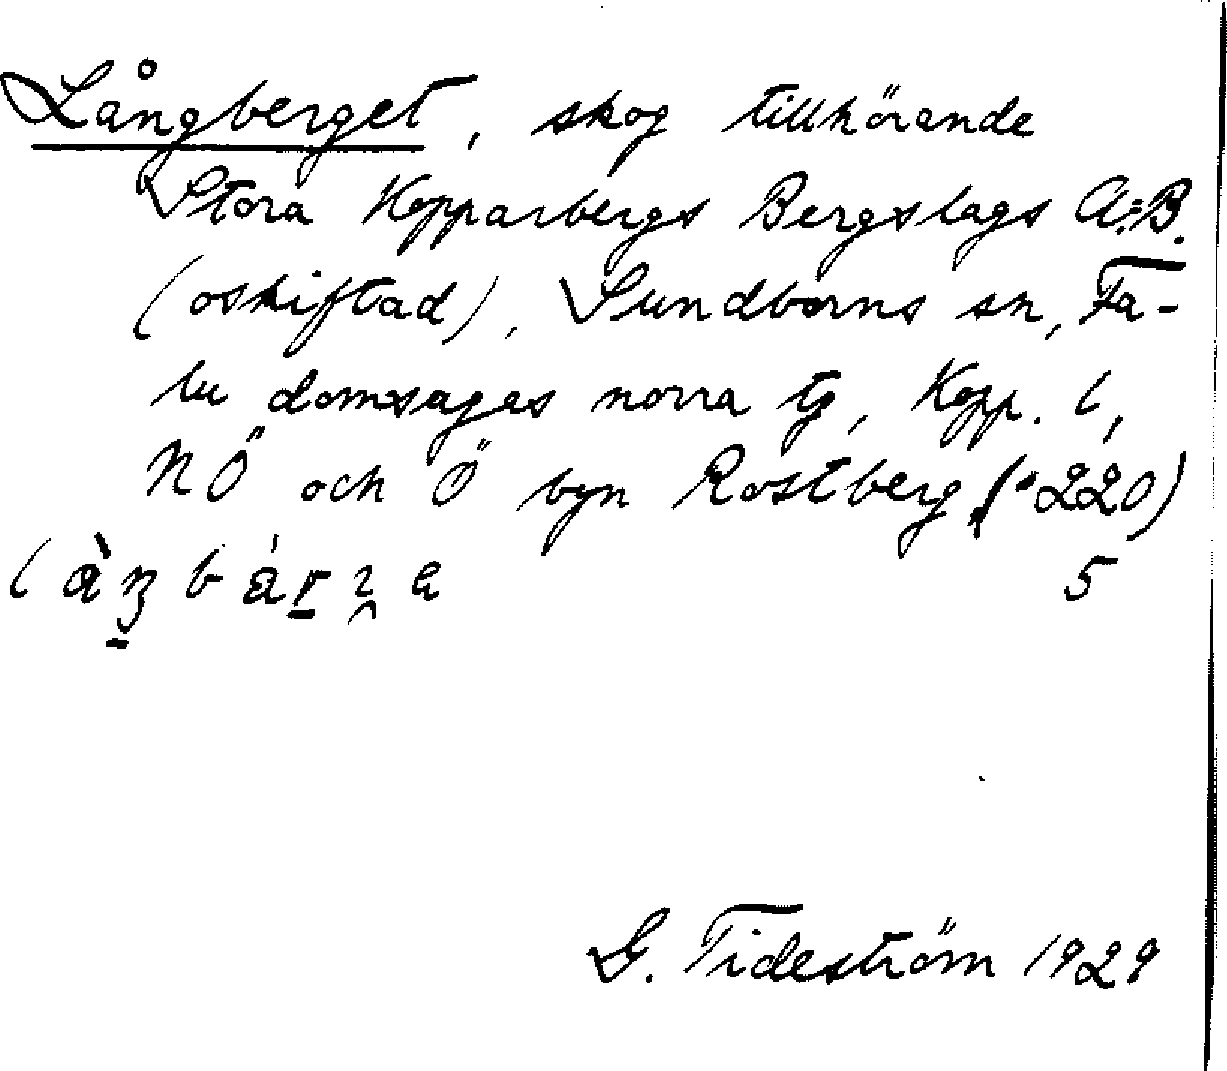 Långberget, skog tillhörande
Stora Kopparbergs Bergslags A.=B.
(oskiftad), Sundborns sn, Fa-
lu domsagas norra tg, Kopp. l,
NÖ och Ö byn Rostberg (*220)
5
G. Tideström 1929